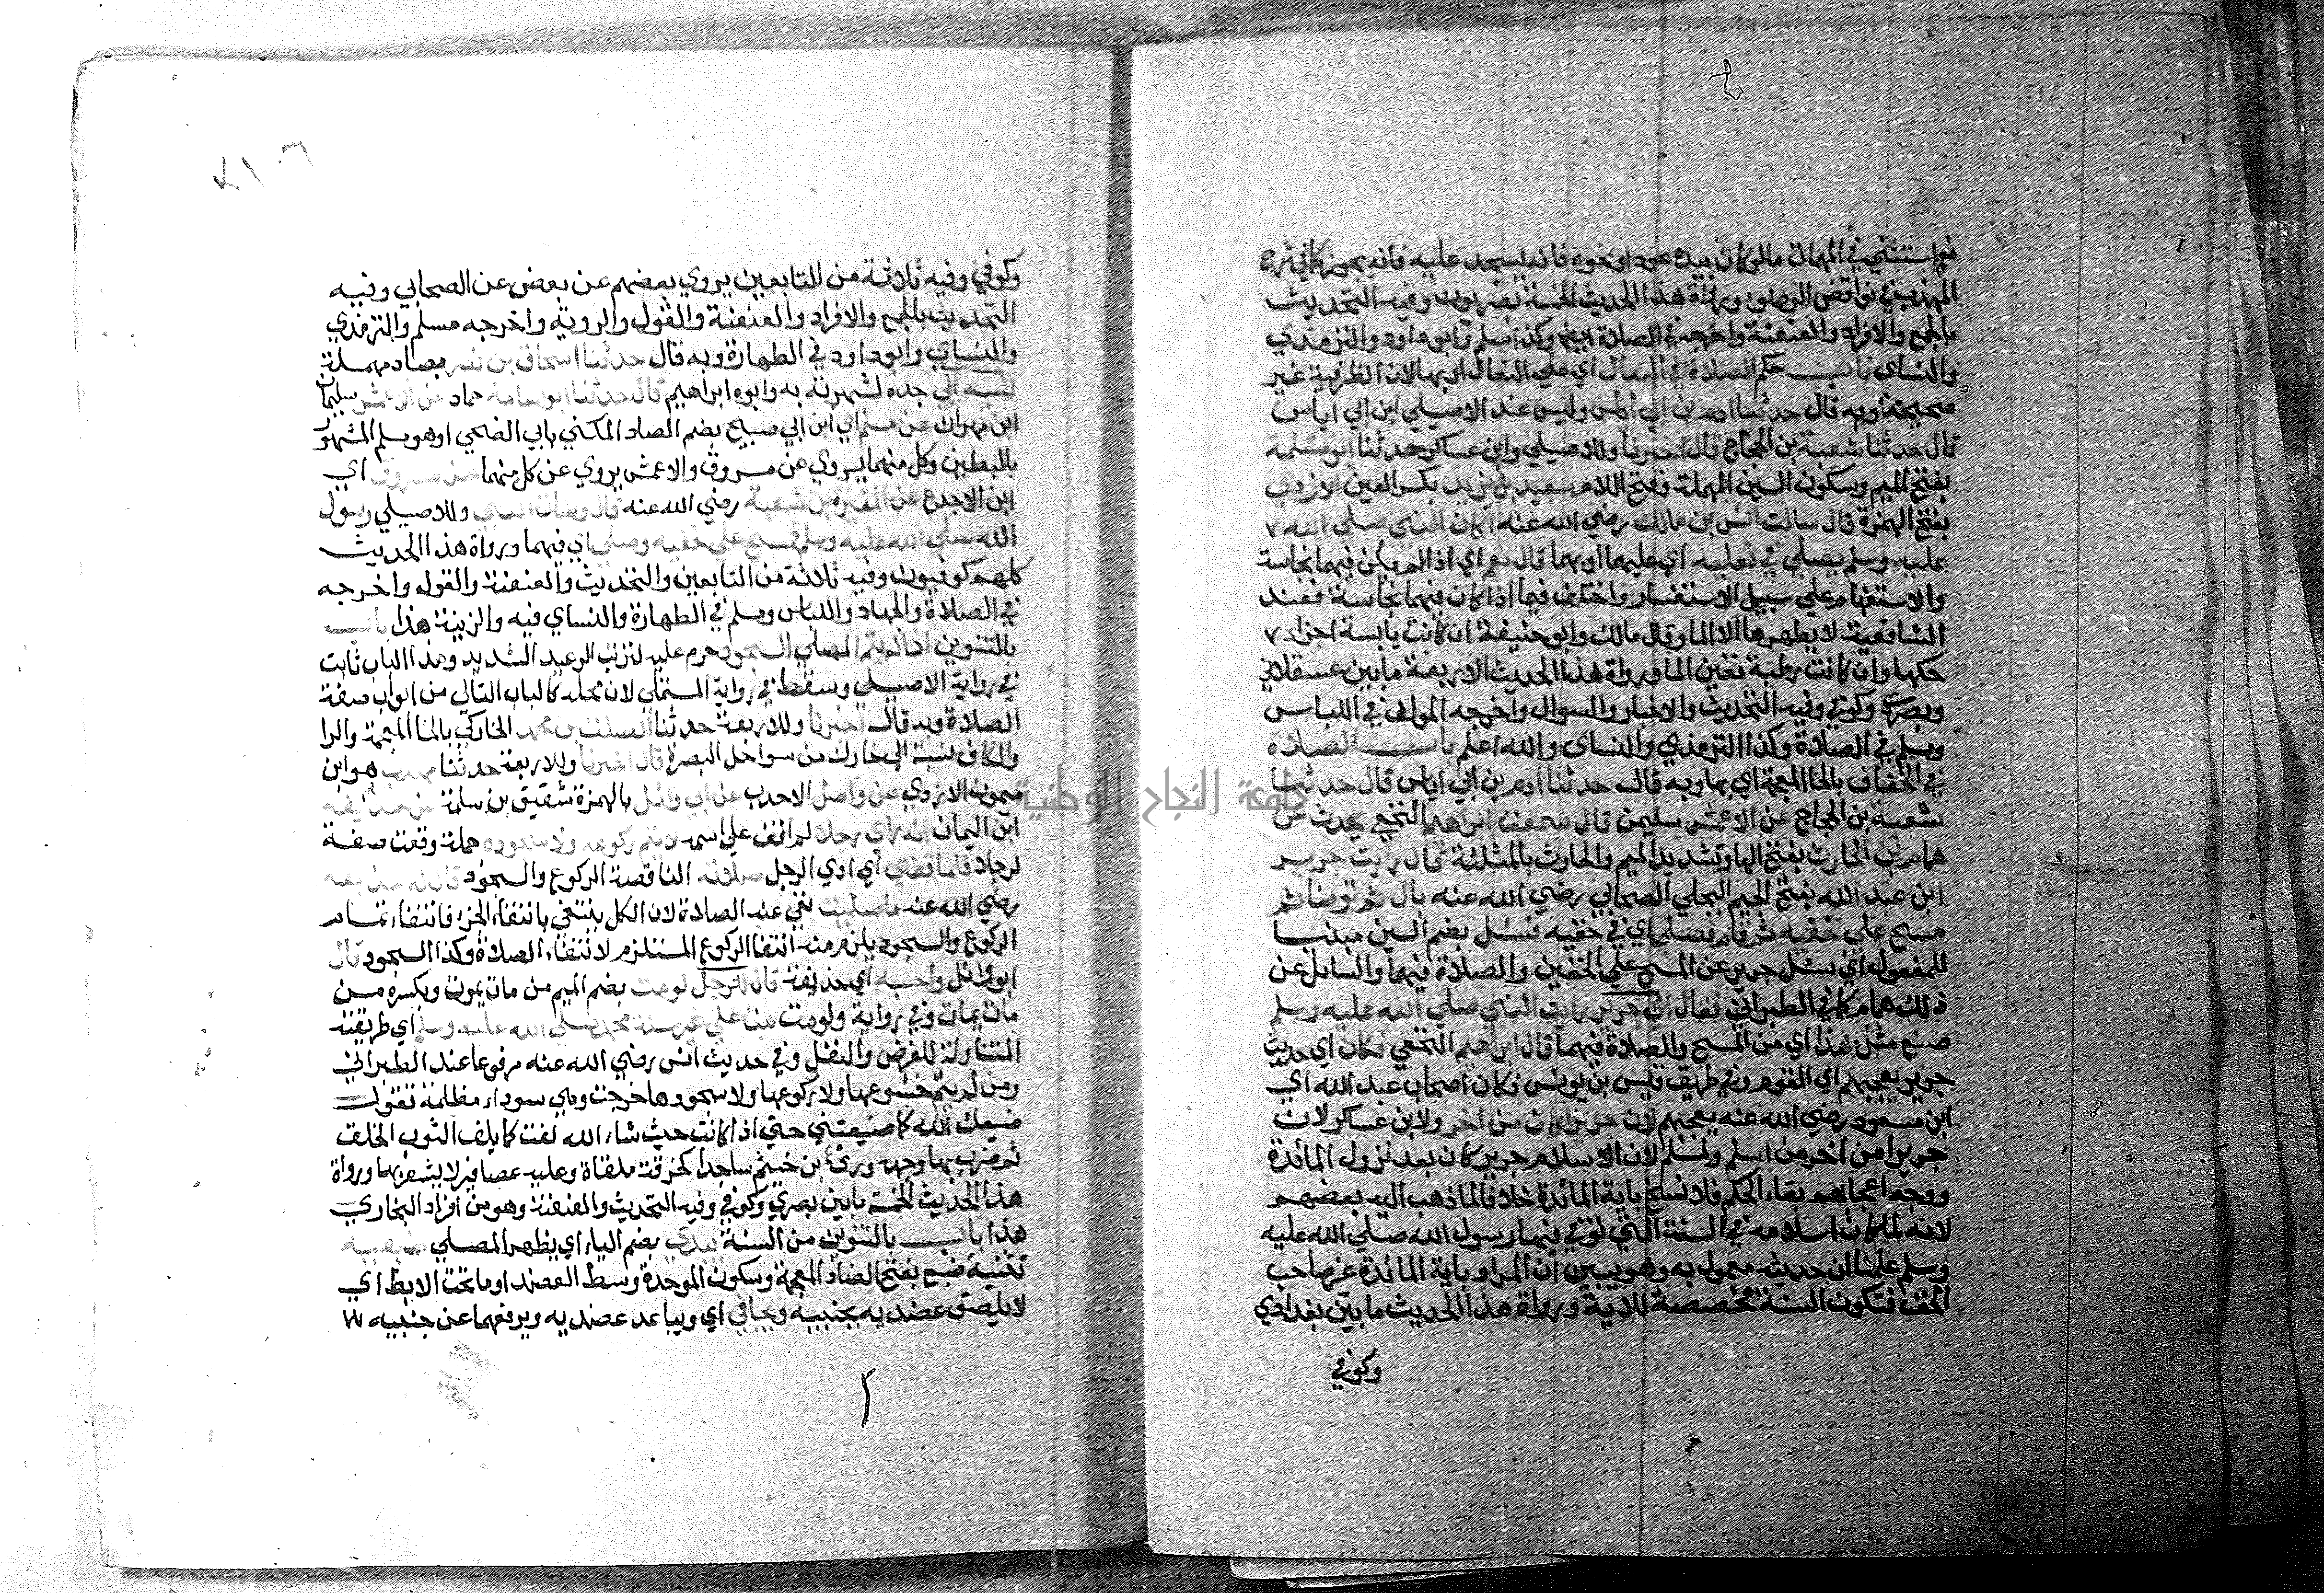 نعم استثني في المهمات ما لو كان بيده عود او نحوه فانه يسجد عليه فانه يجوز كما في شرح
المهذب في نواقض الوضوء ورواة هذا الحديث الخمسة بصريون وفيه التحديث
بالجمع والافراد والعنعنة واخرجه في الصلاة ايضا وكذا مسلم وابو داود والترمذي
والنساي باب حكم الصلاة في النعال اي علي النعال او بها لان الظرفية غير
صحيحة وبه قال حدثنا ادم بن ابي اياس وليس عند الاصيلي ابن ابي اياس
قال حدثنا شعبة بن الحجاج قال اخبرنا وللاصيلي وابن عساكر حدثنا ابو مسلمة
بفتح الميم وسكون السين المهملة وفتح اللام سعيد بن يزيد بكسر العين الازدي
بفتح الهمزة قال سالت انس بن مالك رضي الله عنه اكان النبي صلي الله
عليه وسلم يصلي في نعليه اي عليهما او بهما قال نعم اي اذا لم يكن فيهما نجاسة
والاستفهام علي سبيل الاستفسار واختلف فيما اذا كان فيهما نجاسة فعند
الشافعية لا يطهرها الا الما وقال مالك وابو حنيفة ان كانت يابسة اجزاء
حكها وان كانت رطبة تعين الما ورواة هذا الحديث الاربعة ما بين عسقلاني
وبصري وكوفي وفيه التحديث والاخبار والسوال واخرجه المولف في اللباس
ومسلم في الصلاة وكذا الترمذي والنساي والله اعلم باب الصلاة
في الخفاف بالخا المعجمة اي بها وبه قال حدثنا ادم بن ابي اياس قال حدثنا
شعبة بن الحجاج عن الاعمش سليمن قال سمعت ابراهيم النخعي يحدث عن
همام بن الحارث بفتح الها وتشديد الميم والحارث بالمثلثة قال رايت جرير
ابن عبد الله بفتح الجيم البجلي الصحابي رضي الله عنه بال ثم توضا ثم
مسح علي خفيه ثم قام فصلي اي في خفيه فسئل بضم السين مبنيا
للمفعول اي سئل جرير عن المسح علي الخفين والصلاة فيهما والسائل عن
ذلك همام كما في الطبراني فقال اي جرير رايت النبي صلي الله عليه وسلم
صنع مثل هذا اي من المسح والصلاة فيهما قال ابراهيم النخعي فكان اي حديث
جرير يعجبهم اي القوم وفي طريق عيسي بن يونس فكان اصحاب عبد الله اي
ابن مسعود رضي الله عنه يعجبهم لان جريرا كان من اخر ولابن عساكر لان
جريرا من اخر من اسلم ولمسلم لان اسلام جرير كان بعد نزول المائدة
ووجه اعجابهم بقاء الحكم فلا نسخ باية المائدة خلافا لما ذهب اليه بعضهم
لانه لما كان اسلامه في السنة التي توفي فيها رسول الله صلي الله عليه
وسلم علمنا ان حديثه معمول به وهو يبين ان المراد باية المائدة غير صاحب
الخف فتكون السنة مخصصة للاية ورواة هذا الحديث ما بين بغدادي
وكوفي
وكوفي وفيه ثلاثة من التابعين يروي بعضهم عن بعض عن الصحابي وفيه
التحديث بالجمع والافراد والعنعنة والقول والروية واخرجه مسلم والترمذي
والنساي وابو داود في الطهارة وبه قال حدثنا اسحاق بن نصر بصاد مهملة
لنسبه الي جده لشهرته به وابوه ابراهيم قال حدثنا ابو اسامة حماد عن الاعمش سليمان
ابن مهران عن مسلم اي ابن ابي صبيح بضم الصاد المكني بابي الضحي او هو مسلم المشهور
بالبطين وكل منهما يروي عن مسروق والاعمش يروي عن كل منهما عن مسروق اي
ابن الاجدع عن المغيرة بن شعبة رضي الله عنه قال وضات النبي وللاصيلي رسول
الله صلي الله عليه وسلم فمسح علي خفيه وصلي اي فيهما ورواة هذا الحديث
كلهم كوفيون وفيه ثلاثة من التابعين والتحديث والعنعنة والقول واخرجه
في الصلاة والجهاد واللباس ومسلم في الطهارة والنساي فيه والزينة هذا باب
بالتنوين اذا لم يتم المصلي السجود حرم عليه لترتب الوعيد الشديد وهذا الباب ثابت
في رواية الاصيلي وسقط في رواية المستملي لان محله كالباب التالي من ابواب صفة
الصلاة وبه قال اخبرنا وللاربعة حدثنا الصلت بن محمد الخاركي بالخا المعجمة والرا
والكاف نسبة الي خارك من سواحل البصرة قال اخبرنا وللاربعة حدثنا مهدي هو ابن
ميمون الازدي عن واصل الاحدب عن ابي وائل بالهمزة شقيق بن سلمة عن حذيفة
ابن اليمان انه راي رجلا لم اقف علي اسمه لا يتم ركوعه ولا سجوده جملة وقعت صفة
لرجلا فلما قضي اي ادي الرجل صلاته الناقصة الركوع والسجود قال له حذيفة
رضي الله عنه ما صليت نفي عنه الصلاة لان الكل ينتفي بانتفاء الجزء فانتفاء تمام
الركوع والسجود يلزم منه انتفا الركوع المستلزم لانتفاء الصلاة وكذا السجود قال
ابو وائل واحسبه اي حذيفة قال للرجل لو مت بضم الميم من مات يموت وبكسره من
مات يمات وفي رواية ولو مت مت علي غير سنة محمد صلي الله عليه وسلم اي طريقته
المتناولة للفرض والنفل وفي حديث انس رضي الله عنه مرفوعا عند الطبراني
ومن لم يتم خشوعها ولا ركوعها ولا سجودها خرجت وهي سوداء مظلمة تقول
ضيعك الله كما ضيعتني حتي اذا كانت حيث شاء الله لفت كما يلف الثوب الخلق
ثم ضرب بها وجهه ورئ ابن خيثم ساجدا كخرقة ملقاة وعليه عصافير لا يشعر بها ورواة
هذا الحديث الخمسة ما بين بصري وكوفي وفيه التحديث والعنعنة وهو من افراد البخاري
هذا باب بالتنوين من السنة يبدي بضم الياء اي يظهر المصلي ضبعيه
تثنية ضبع بفتح الضاد المعجمة وسكون الموحدة وسط العضد او ما تحت الابط اي
لا يلصق عضديه بجنبيه ويجافي اي ويباعد عضديه ويرفعهما عن جنبيه
جامعة النجاح الوطنية